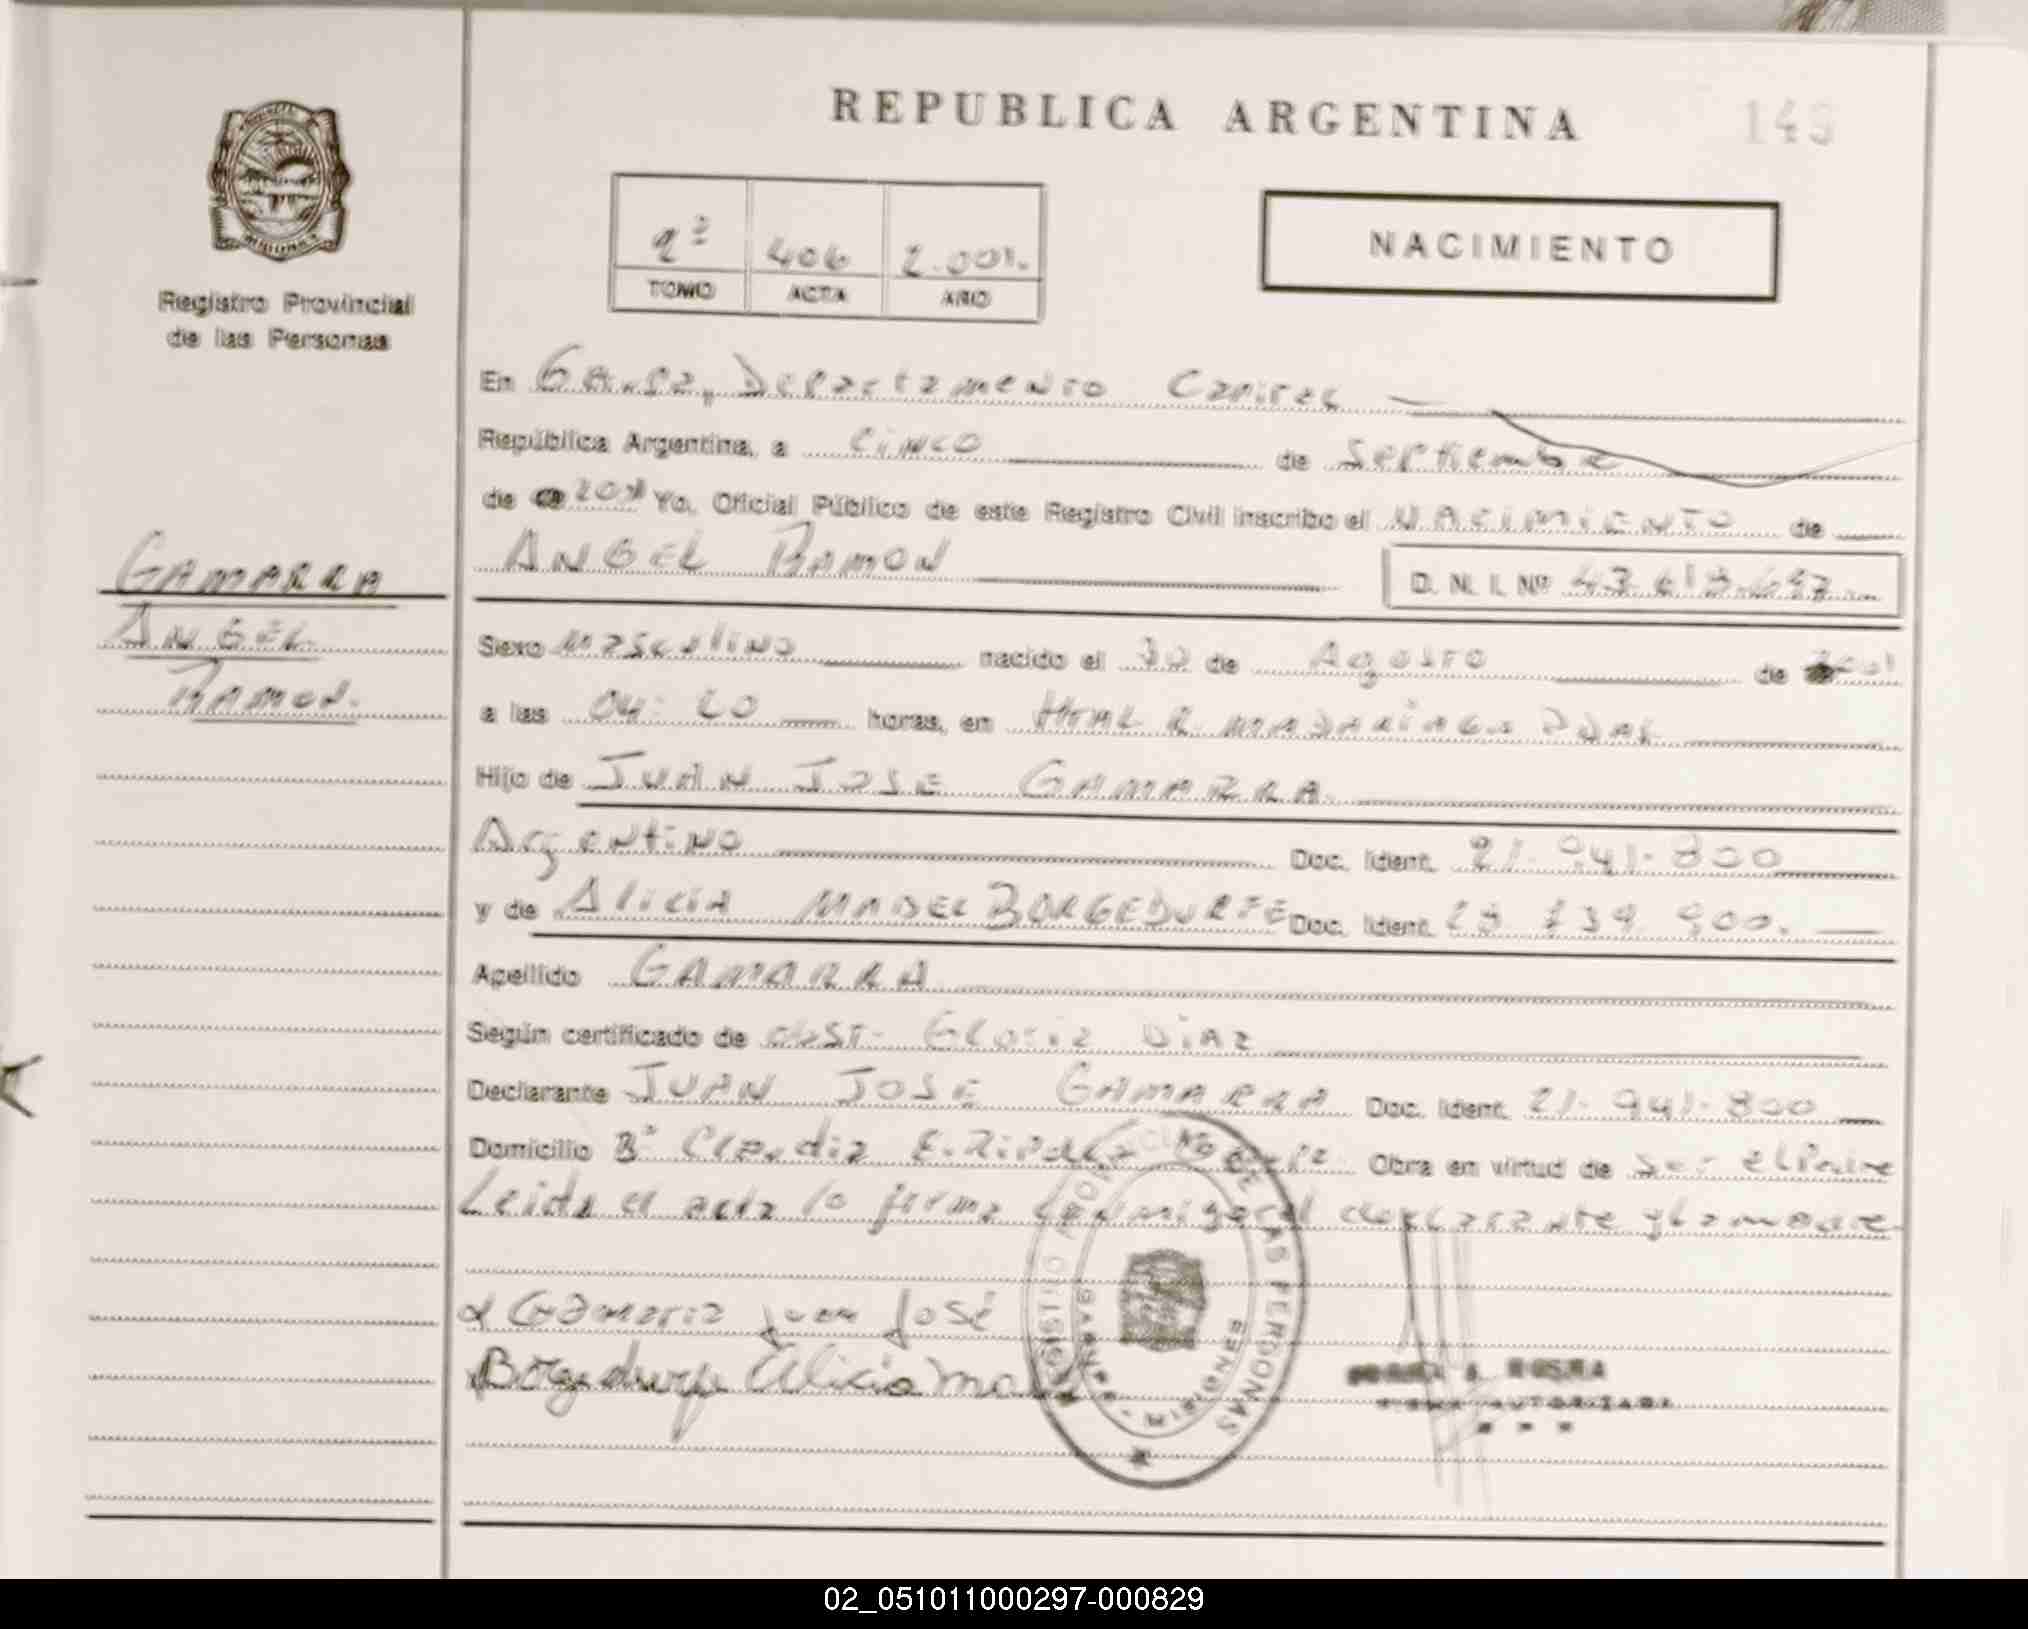 REPUBLICA ARGENTINA
406 2.001.
TOMO ACTA AÑO
NACIMIENTO
Registro Provincial
de las Personas
En Departamento Capital
República Argentina, a cinco de Septiembre
de 2001 Yo, Oficial Público de este Registro Civil inscribo el NACIMIENTO de
ANGEL RAMON D. N. I. Nº
GAMARRA
ANGEL
RAMON.
Sexo Masculino nacido el 30 de Agosto de 2001
a las 04:20 horas, en
Hijo de JUAN JOSE GAMARRA
Argentino Doc. Ident. 21.941.800
y de Alicia MABEL BORGEDURFE Doc. Ident. 900.
Apellido GAMARRA
Según certificado de obst. Gloria Diaz
Declarante JUAN JOSE GAMARRA Doc. Ident. 21.941.800
Domicilio Bº Obra en virtud de ser el Padre
Leida el acta lo firma conmigo el declarante y la madre
Gamarra juan José
Alicia
REGISTRO PROVINCIAL DE LAS PERSONAS
MISIONES
02_051011000297-000829